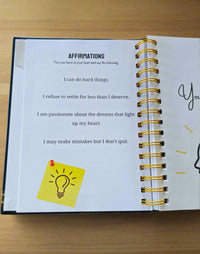 AFFIRMATIONS
Put your hand on your heart and say the following
I can do hard things.
I refuse to settle for less than I deserve.
I am passionate about the dreams that light
up my heart.
I may make mistakes but I don't quit.
You